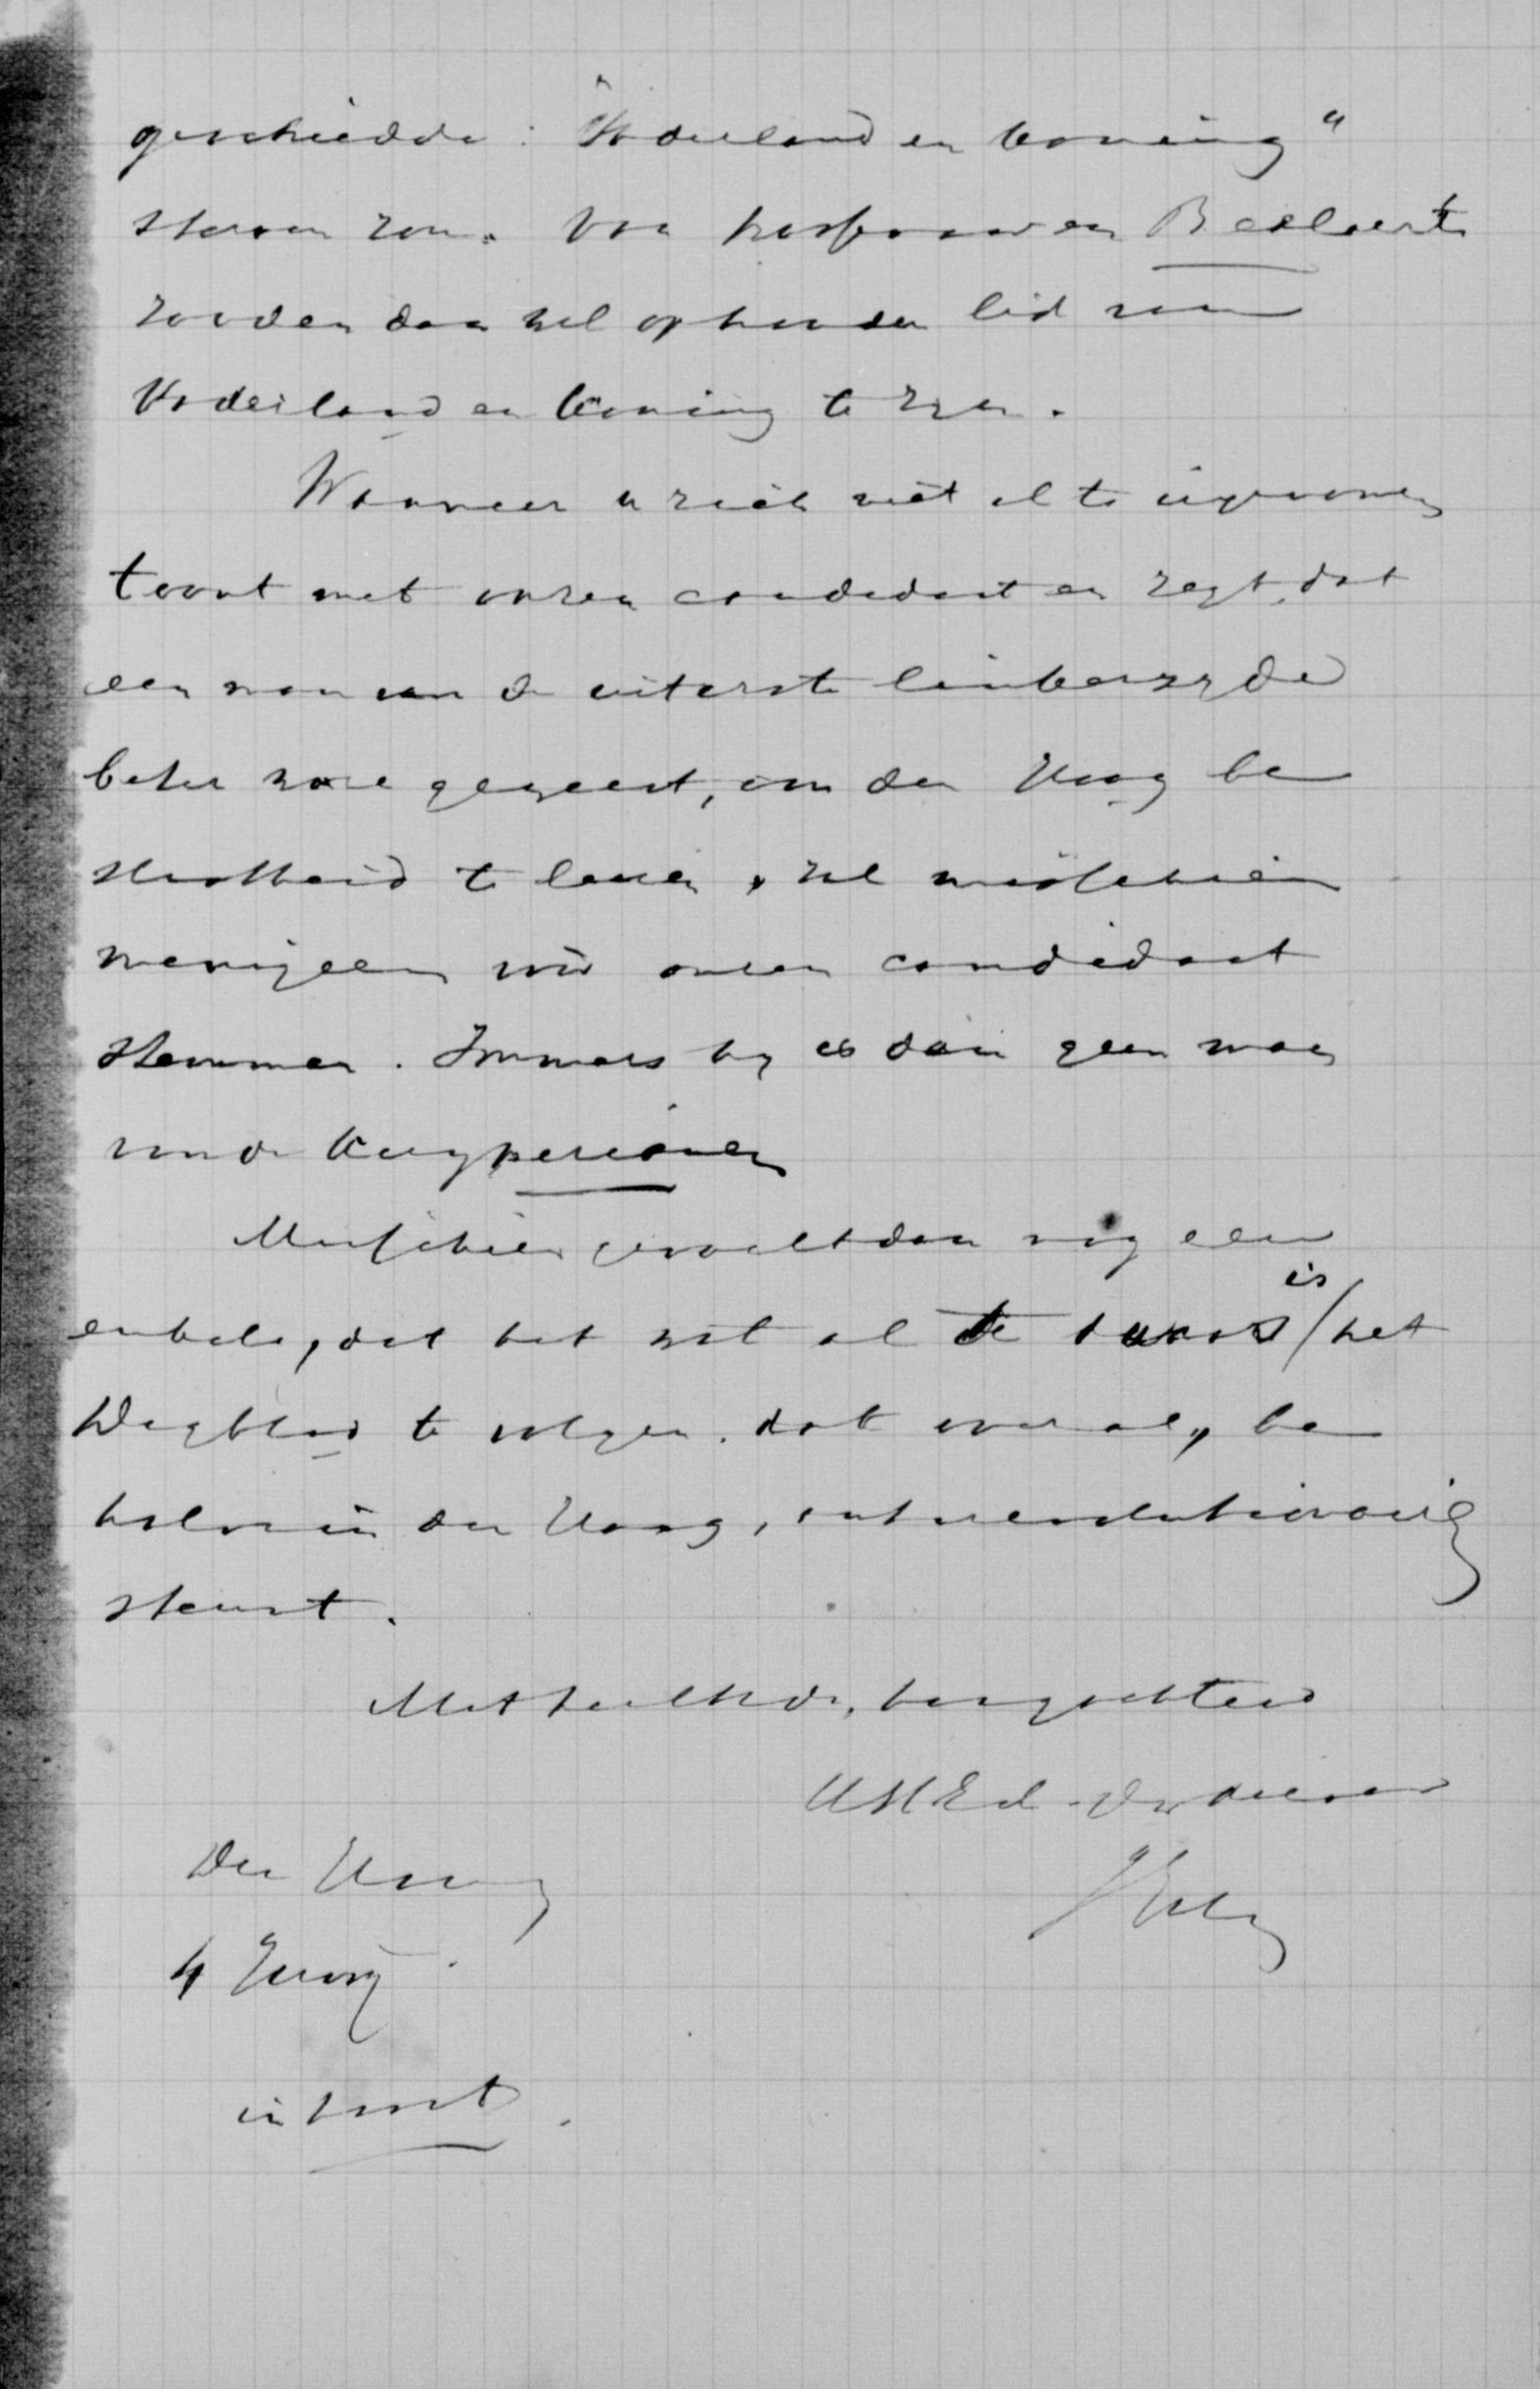 geschiedde: "Vaderland en Koning"
sterven zou. Van en Beelaerts
zouden dan wel ophouden lid van
Vaderland en Koning te zyn.
Wanneer u zich niet al te ingenomen
toont met onzen candidaat en zegt, dat
een man van de uiterste linkerzyde
beter ware geweest, om den Haag be
slistheid te leeren, zal misschien
menigeen voor onzen candidaat
stemmen. Immers hy is dan geen man
van de Kuyperianen
Misschien gevoelt dan nog een
enkele, dat het wat al te dwaas is / het
Dagblad te volgen, dat overal, be
halve in den Haag, antirevolutionair
steunt.
Met hoogachtend
UHEd. Dw dienaar
Den Haag
4 Juny
in haast.